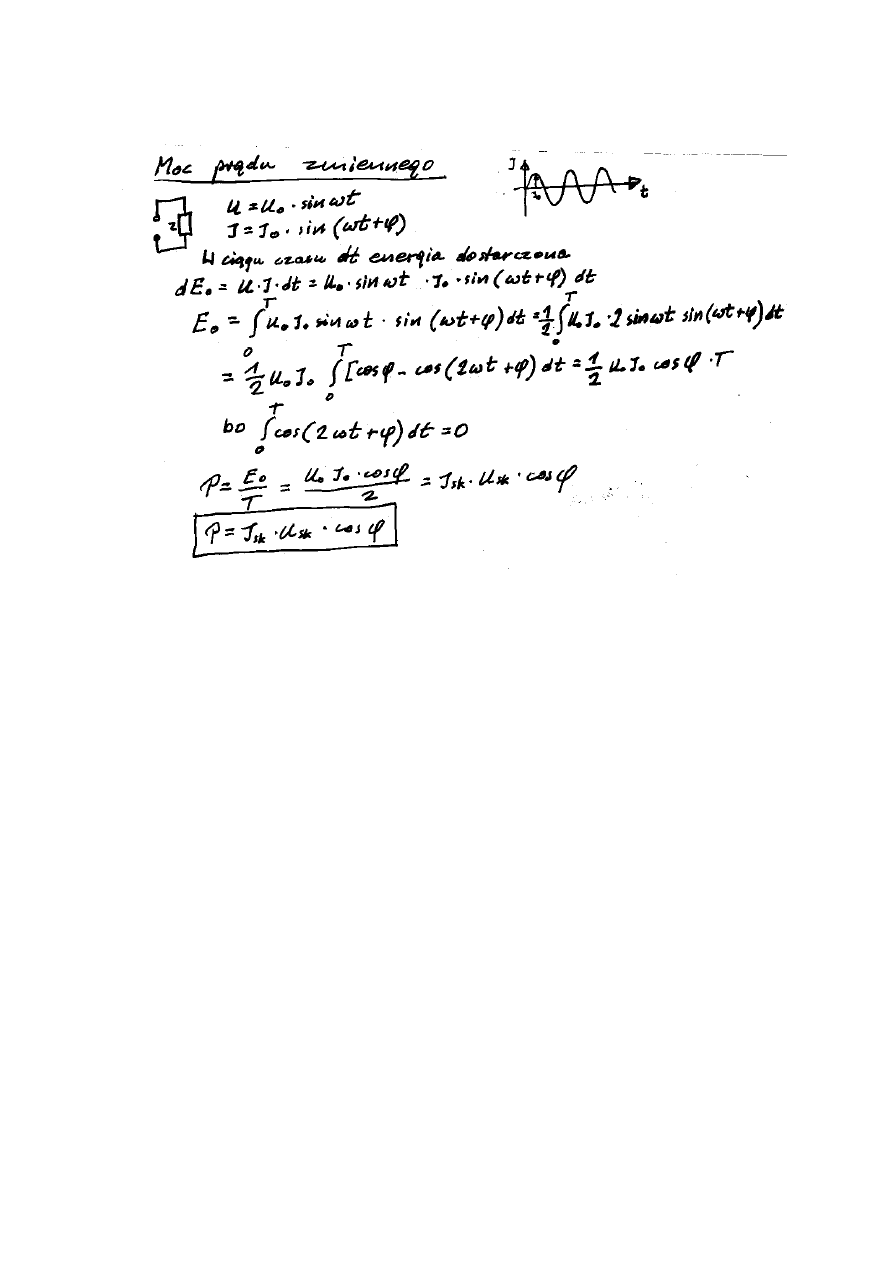 Moc prądu zmiennego
J
t
J₀
Z
U = U₀ · sin ωt
J = J₀ · sin (ωt+φ)
W ciągu czasu dt energia dostarczona
dE₀ = U·J·dt = U₀·sin ωt · J₀ · sin (ωt+φ) dt
E₀ = ∫₀ᵀ U₀ J₀ sin ωt · sin (ωt+φ) dt = 1/2 ∫₀ᵀ U₀ J₀ · 2 sin ωt sin (ωt+φ) dt
= 1/2 U₀ J₀ ∫₀ᵀ [cos φ - cos (2ωt+φ) dt = 1/2 U₀ J₀ cos φ · T
bo ∫₀ᵀ cos (2ωt+φ) dt = 0
P = E₀/T = U₀ J₀ · cos φ/2 = Jsk · Usk · cos φ
P = Jsk · Usk · cos φ